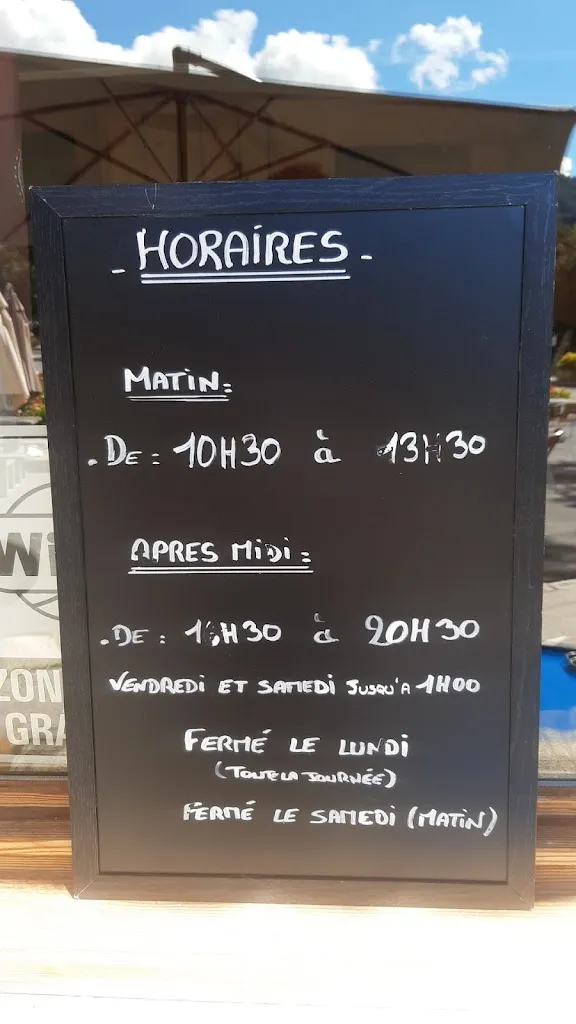 - HORAIRES -
MATIN:
. DE : 10H30 à 13H30
APRES MIDI :
. DE : à 20H30
VENDREDI ET SAMEDI JUSQU'A 1H00
FERMÉ LE LUNDI
(TOUTE LA JOURNÉE)
FERMÉ LE SAMEDI (MATIN)